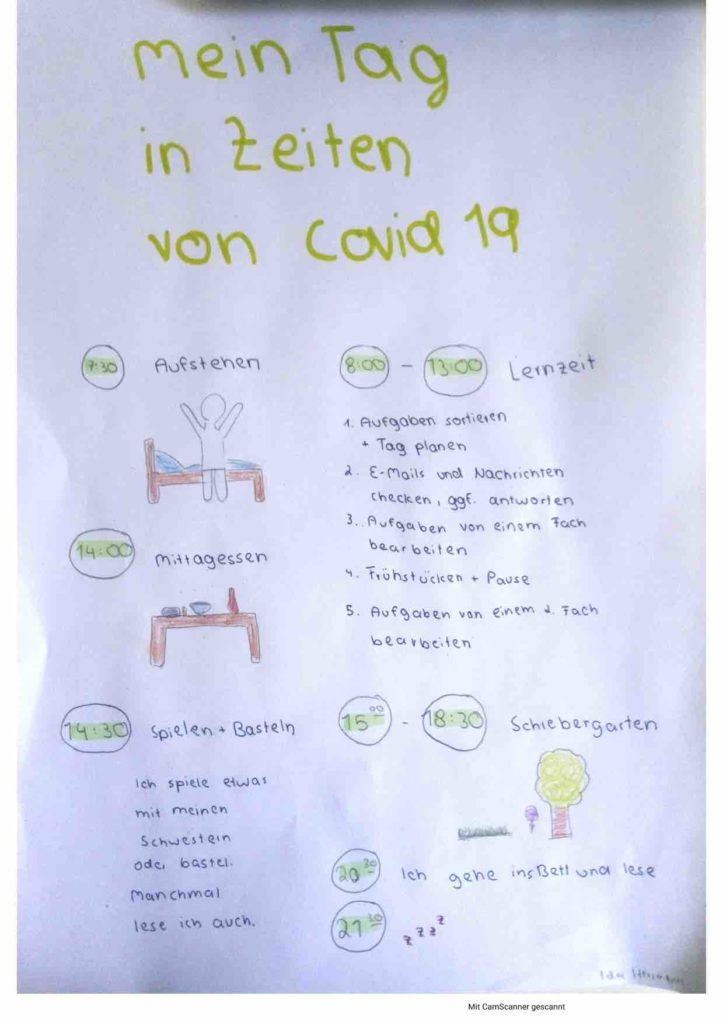 Mein Tag
in Zeiten
von Covid 19
7:30 Aufstehen
8:00 - 13:00 Lernzeit
1. Aufgaben sortieren
+ Tag planen
2. E-Mails und Nachrichten
checken, ggf. antworten
3. Aufgaben von einem Fach
bearbeiten
4. Frühstücken + Pause
5. Aufgaben von einem 2. Fach
bearbeiten
14:00 Mittagessen
14:30 Spielen + Basteln
Ich spiele etwas
mit meinen
Schwestern
oder bastel.
Manchmal
lese ich auch.
15 00 - 18:30 Schiebergarten
20 30 Ich gehe ins Bett und lese
21 30 z z z z
Ida
Mit CamScanner gescannt